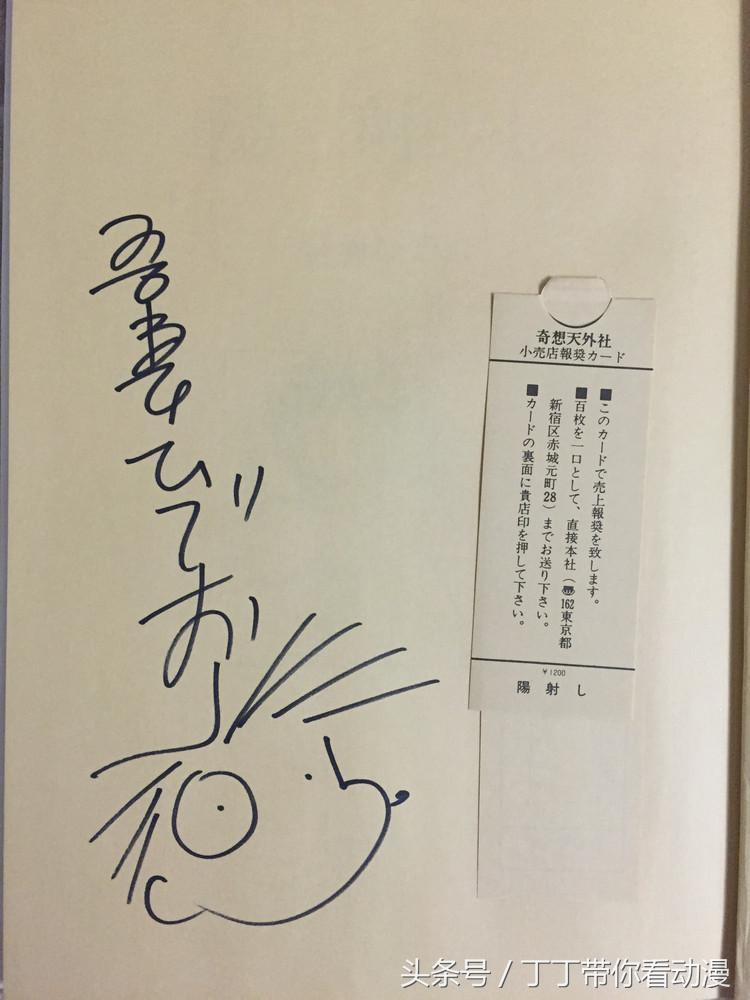 吾妻ひでお
奇想天外社
小売店報奨カード
■このカードで売上報奨を致します。
■百枚を一口として、直接本社(〠162東京都
新宿区赤城元町28)までお送り下さい。
■カードの裏面に貴店印を押して下さい。
¥1200
陽射し
头条号 / 丁丁带你看动漫